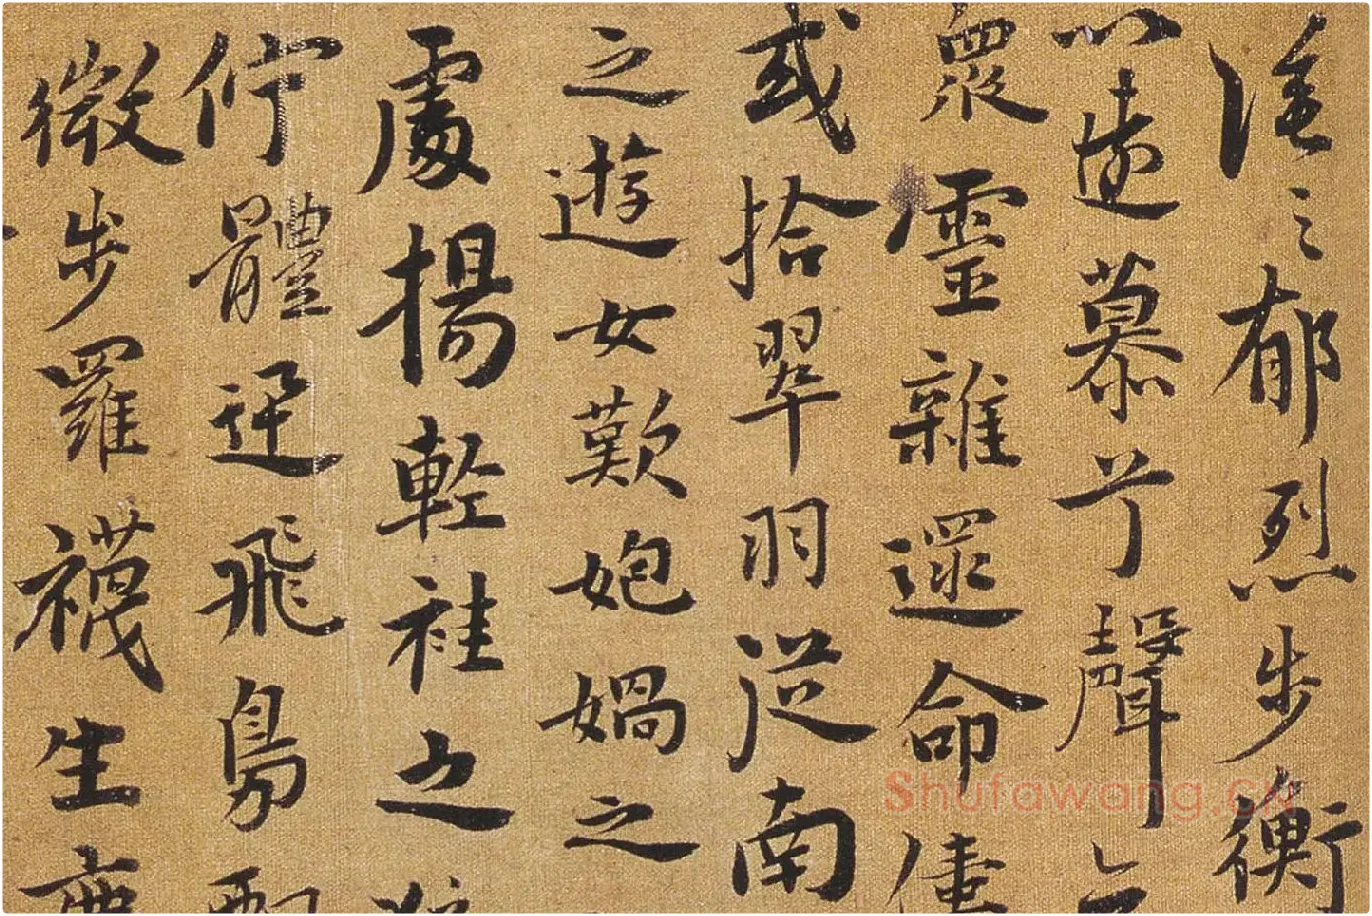 涂之郁烈步衡
以遠慕兮聲
衆靈雜遝命
或拾翠羽從南
之遊女歎㚿媧之
處揚輕袿之
佇體迅飛鳧
微步羅襪生
Shufawang.CN